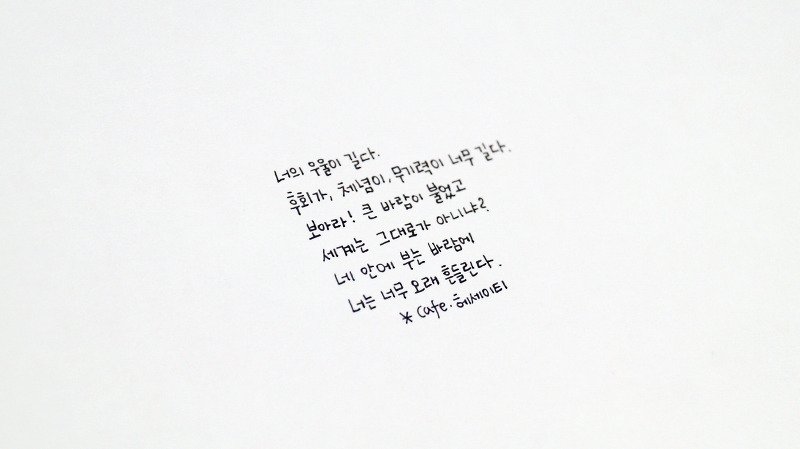 너의 우울이 길다.
후회가, 체념이, 무기력이 너무 길다.
보아라! 큰 바람이 불었고
세계는 그대로가 아니냐?
네 안에 부는 바람에
너는 너무 오래 흔들린다.
* Cafe. 헤세이티